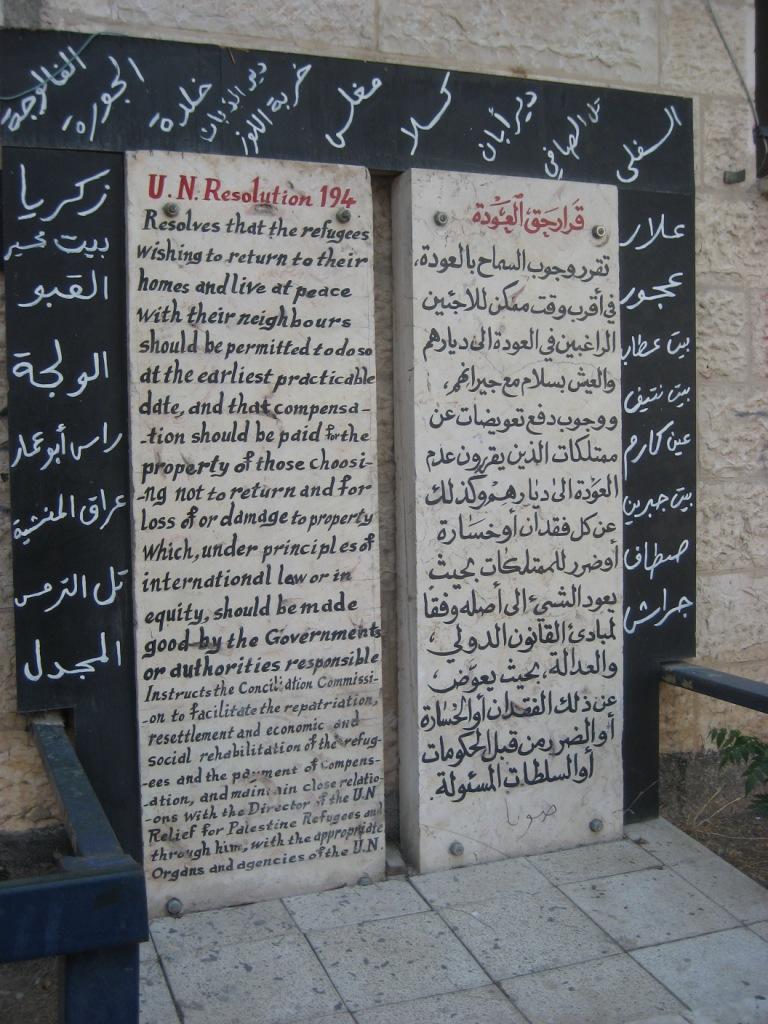 الفالوجة
الجورة
خلدة
دير الذبان
خربة اللوز
مغلس
كسلا
دير أبان
تل الصافي
السفلى
زكريا
بيت محسير
القبو
الولجة
راس أبو عمار
عراق المنشية
تل الترمس
المجدل
U.N. Resolution 194
Resolves that the refugees
wishing to return to their
homes and live at peace
with their neighbours
should be permitted to do so
at the earliest practicable
date, and that compensa-
-tion should be paid for the
property of those choosi-
-ng not to return and for
loss of or damage to property
which, under principles of
international law or in
equity, should be made
good by the Governments
or authorities responsible
Instructs the Conciliation Commissi-
-on to facilitate the repatriation,
resettlement and economic and
social rehabilitation of the refug-
-ees and the payment of compens-
-ation, and maintain close relatio-
-ons with the Director of the U.N
Relief for Palestine Refugees and
through him, with the appropriate
Organs and agencies of the U.N.
قرار حق العودة
تقرر وجوب السماح بالعودة،
في أقرب وقت ممكن للاجئين
الراغبين في العودة الى ديارهم
والعيش بسلام مع جيرانهم،
ووجوب دفع تعويضات عن
ممتلكات الذين يقررون عدم
العودة الى ديارهم وكذلك
عن كل فقدان أو خسارة
أو ضرر للممتلكات بحيث
يعود الشيئ الى أصله وفقا
لمبادئ القانون الدولي
والعدالة، بحيث يعوض
عن ذلك الفقدان أو الخسارة
أو الضرر من قبل الحكومات
أو السلطات المسئولة.
علار
عجور
بيت عطاب
بيت نتيف
عين كارم
بيت جبرين
صطاف
جراش